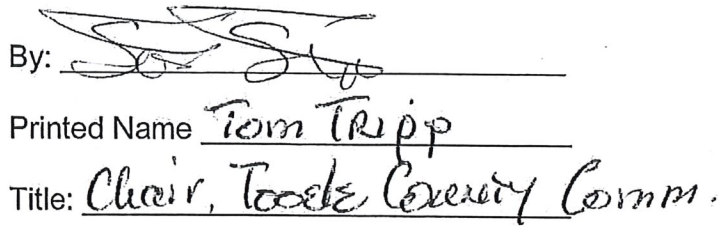 By:
Printed Name Tom Tripp
Title: Chair, Tooele County Comm.